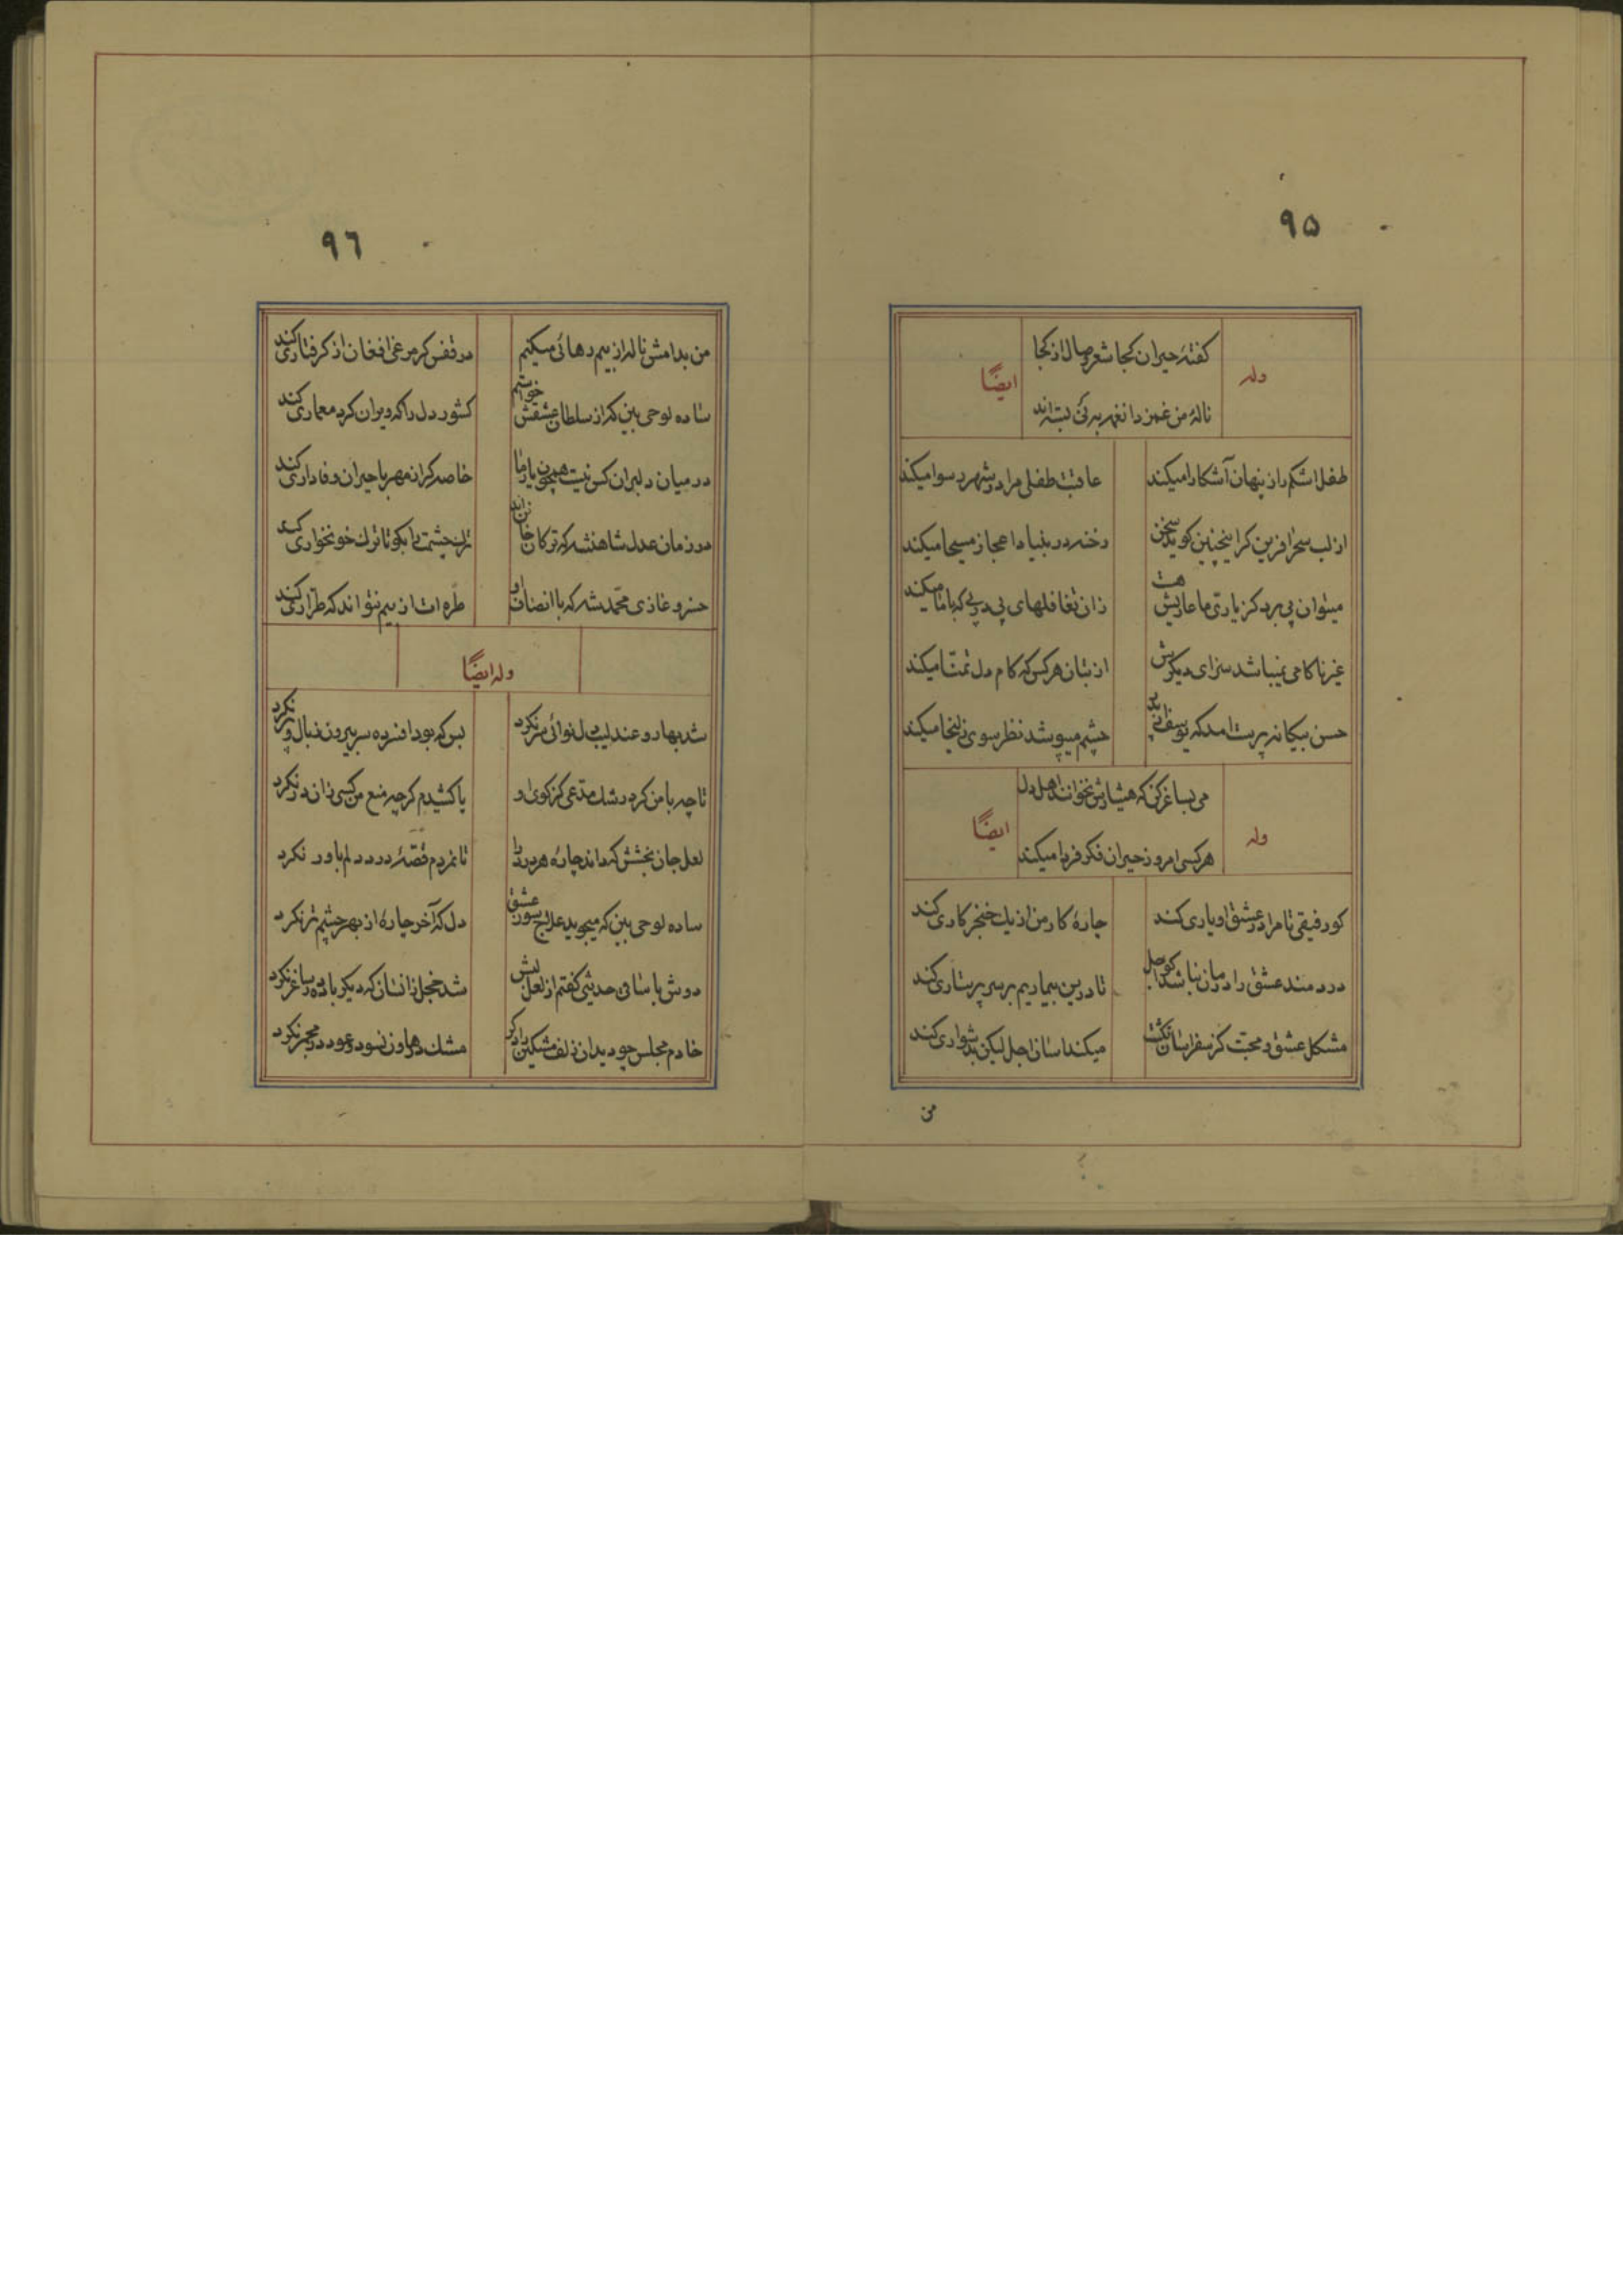 ۹۵
گفتهٔ حیران کجا شعر وصال از کجا
وله
ایضاً
نالهٔ من غمزدا نغمه بر نی بسته‌اند
طفل اشکم راز پنهان آشکارا میکند
عاقبت طفلی مرا در شهر رسوا میکند
از لب سحر افرین کر اینچنین کوید سخن
رخنه در بنیاد اعجاز مسیحا میکند
میتوان پی برد کز یاری ما عاریش هست
زان تغافلهای پی در پی که با ما میکند
غیر ناکامی نمیباشد سزای دیکرش
از بتان هر کس که کام دل تمنا میکند
حسن بیکانه پرست امد که یوسف
چشم میپوشد نظر سوی زلیخا میکند
می بساغر کن که هشیارش نخوانند اهل دل
وله
ایضاً
هر کسی امروز حیران فکر فردا میکند
کو رفیقی تا مرا در عشق او یاری کند
چارهٔ کار من از یک خنجر کاری کند
دردمند عشق را درمان نباشد کو اجل
تا درین بیماریم بر سر پرستاری کند
مشکل عشق و محبت کز سفر اسان نکشت
میکند اسان اجل لیکن بدشواری کند
من
۹٦
من بدامش ناله از بیم رهائی میکنم
در قفس کر مرغی افغان از کرفتاری کند
ساده لوحی بین که از سلطان عشقش خواستم
کشور دل را که ویران کرد معماری کند
در میان دلبران کس نیست همچون یار ما
خاصه کز انمهر با حیران وفاداری کند
در زمان عدل شاهنشه که ترکان
ترک چشمت را بکو تا ترک خونخواری کند
خسرو غازی محمد شه که با انصاف او
طره‌ات از بیم نتواند که طراری کند
وله ایضاً
شد بهار و عندلیب دل نوائی سر نکرد
بس که بود افسرده سر بیرون ز بال و پر نکرد
تا چه با من کرد رشک مدعی کز کوی او
پا کشیدم کرچه منع من کسی زان در نکرد
لعل جان بخشش که داند چارهٔ هر درد را
تا نمردم قصهٔ درد دلم باور نکرد
ساده لوحی بین که میجوید علاج سوز عشق
دل که آخر چارهٔ از بهر چشم تر نکرد
دوش با ساقی حدیثی کفتم از لعل لبش
شد خجل زانسان که دیکر باده در ساغر نکرد
خادم مجلس چو دید ان زلف مشکین را دکر
مشک در هاون نسود و عود در مجمر نکرد